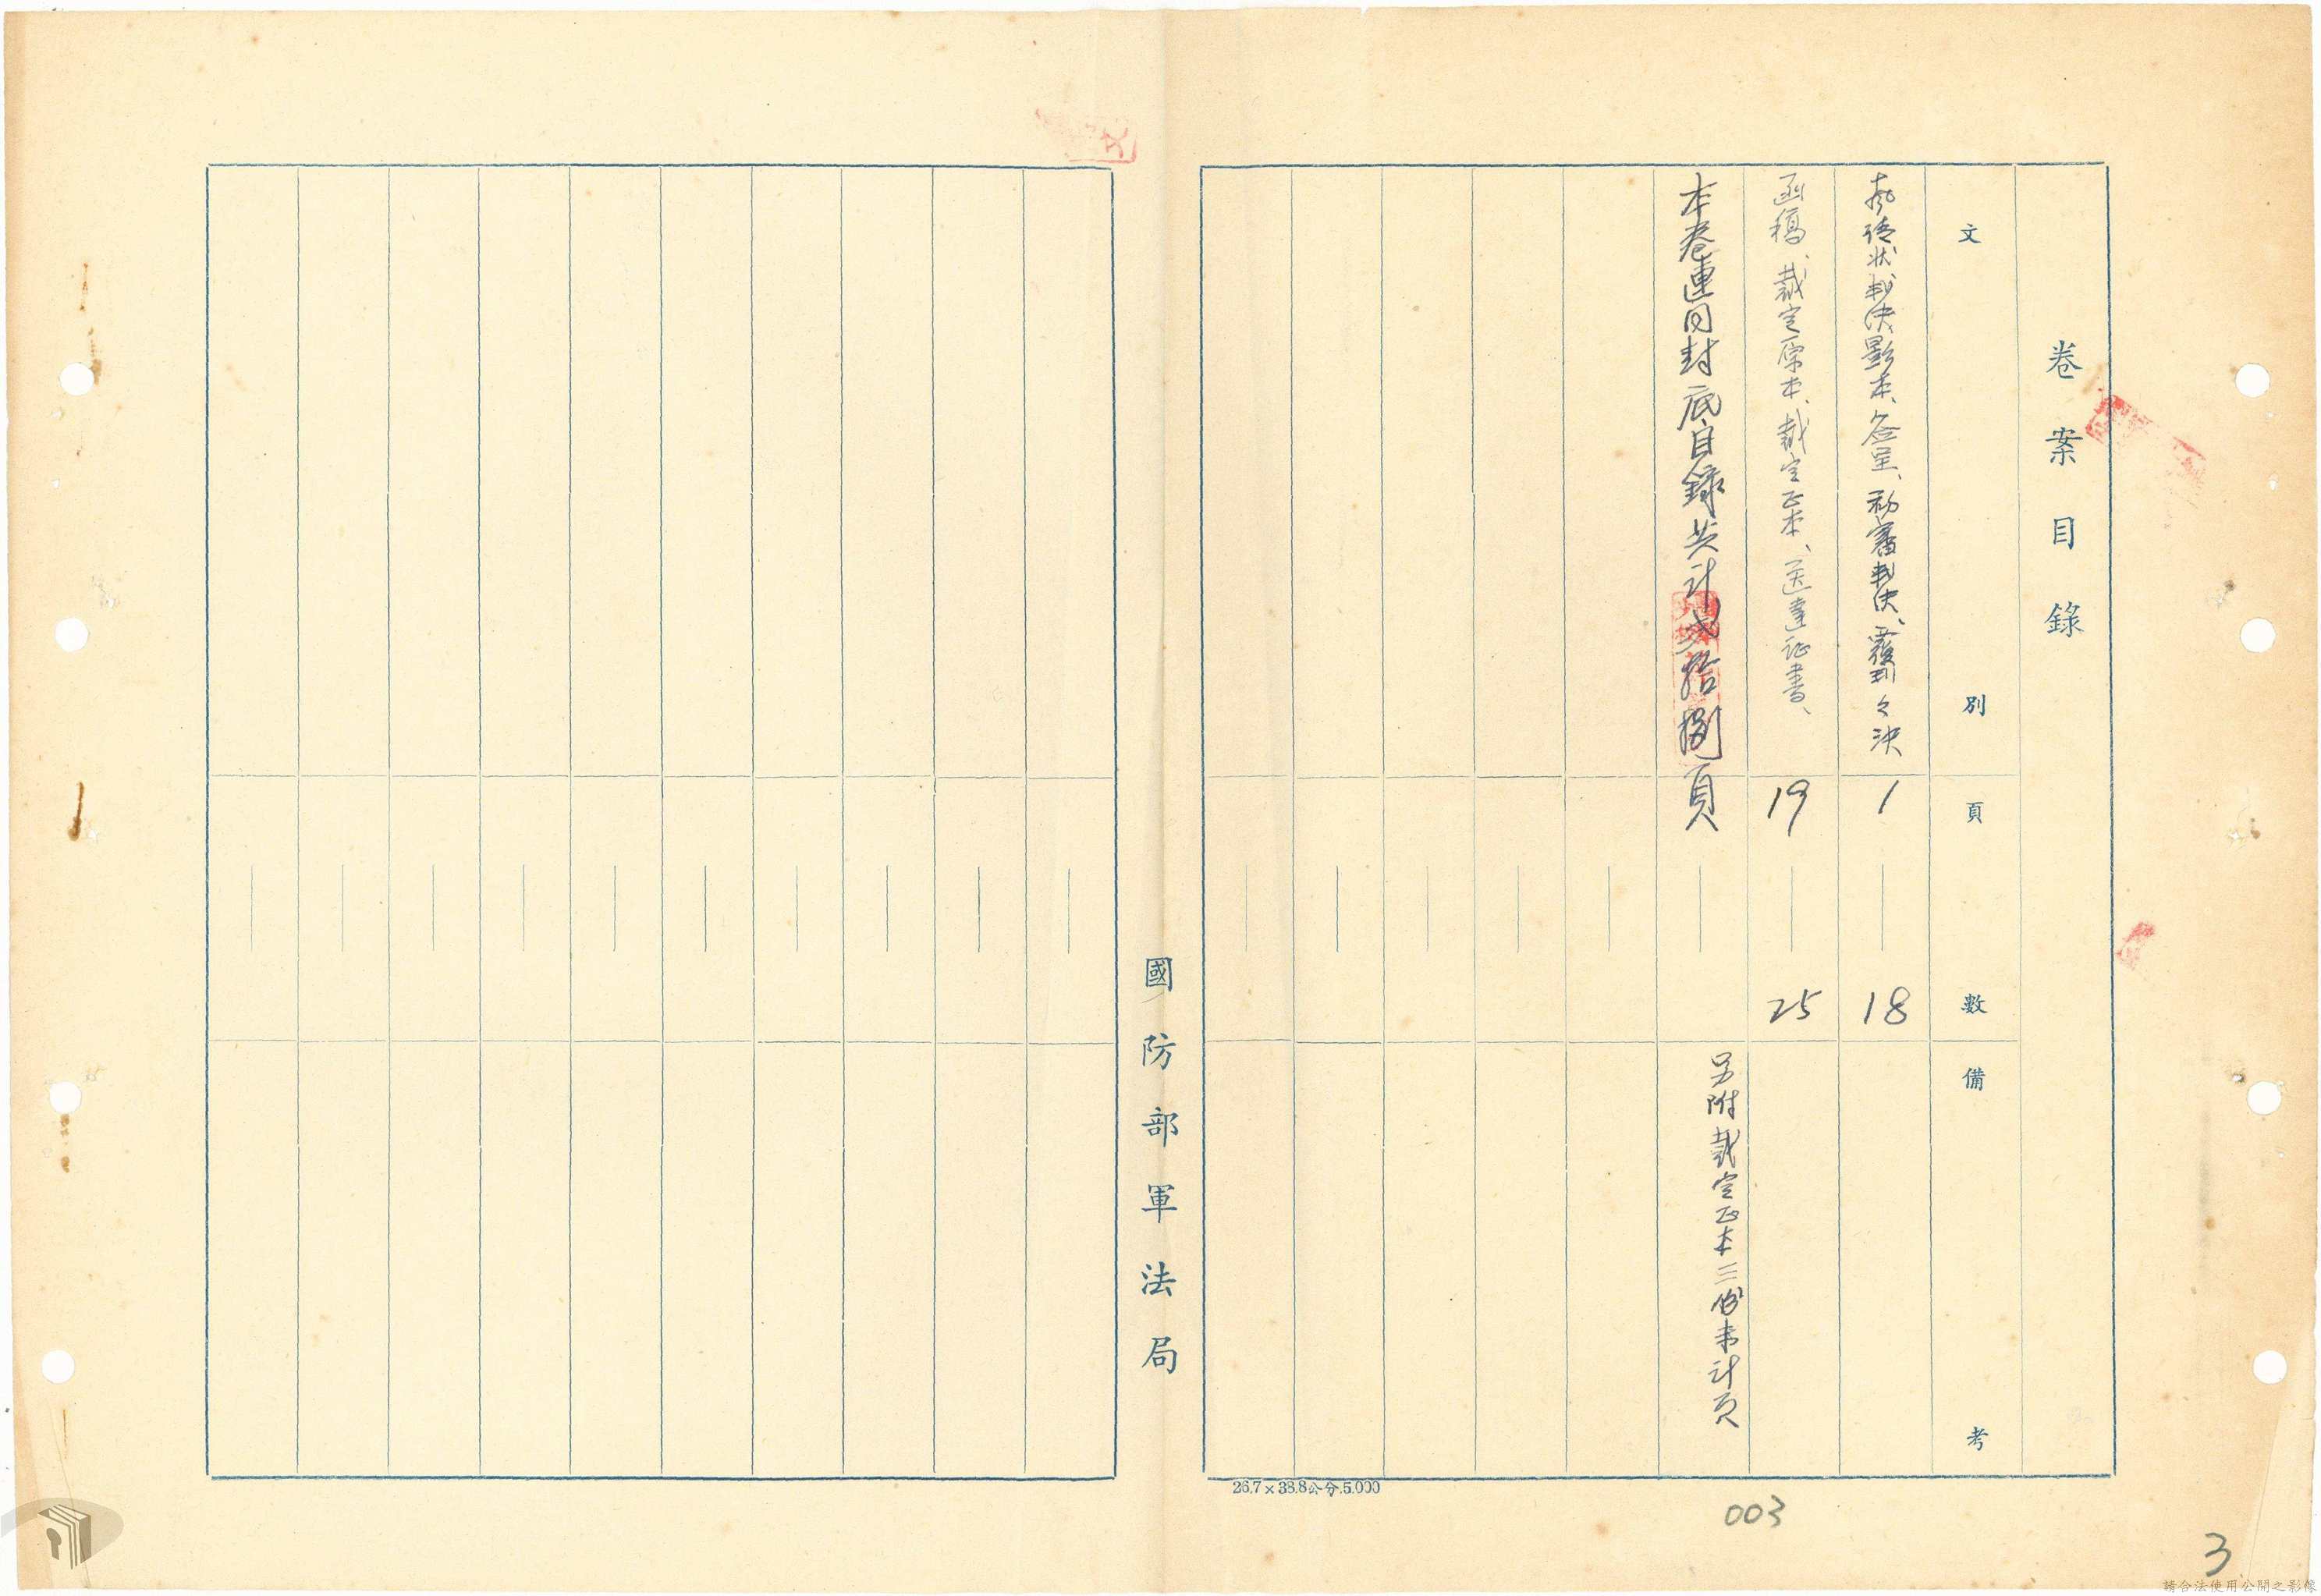 卷案目錄
文別
頁數
備考
狀判決影本、簽呈、初審判決、覆判々決
1—18
函稿、裁定原本、裁定正本、送達证書、
19—25
本卷連同封底目錄共計貳拾捌頁
另附裁定正本三份未計頁
國防部軍法局
26.7×38.8公分.5.000
003
3
請合法使用公開之影像